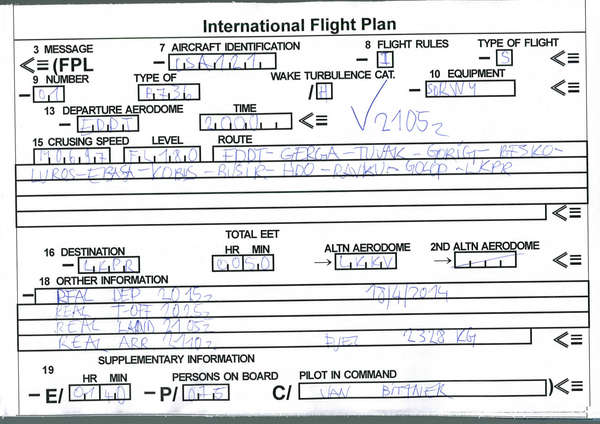 International Flight Plan
3 MESSAGE 7 AIRCRAFT IDENTIFICATION 8 FLIGHT RULES TYPE OF FLIGHT
<≡(FPL – CSA121 – I – S <≡
9 NUMBER TYPE OF WAKE TURBULENCE CAT. 10 EQUIPMENT
– 01 B736 /M – SDRWY <≡
13 DEPARTURE AERODOME TIME
– EDDT 2000 <≡ √2105z
15 CRUSING SPEED LEVEL ROUTE
FL180 EDDT–GERGA–TUVAK–GORIG–BESKO–
LUROS–EBASA–KOBUS–BISIR–HDO–RAVKU–GOLOP–LKPR
<≡
TOTAL EET
16 DESTINATION HR MIN ALTN AERODOME 2ND ALTN AERODOME
– LKPR 0050 →LKKV → <≡
18 ORTHER INFORMATION
– REAL DEP 2015z 18/4/2014
REAL T-OFF 2025z
REAL LAND 2105z
REAL ARR 2110z FUEL 2328 KG <≡
SUPPLEMENTARY INFORMATION
19 HR MIN PERSONS ON BOARD PILOT IN COMMAND
– E/ 0140 – P/ 075 C/ VAN BITTNER )<≡